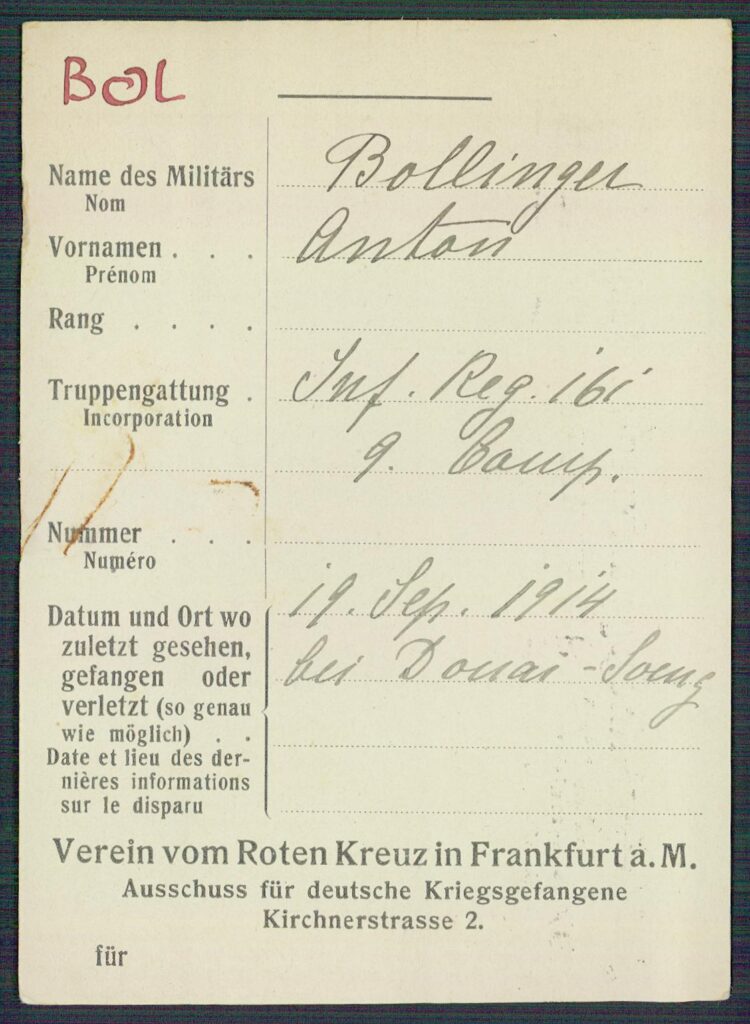 BOL
Name des Militärs Bollinger
Nom
Vornamen . . . Anton
Prénom
Rang . . . .
Truppengattung . Inf. Reg. 161
Incorporation
9. Comp.
Nummer . . .
Numéro
Datum und Ort wo 19. Sep. 1914
zuletzt gesehen,
gefangen oder bei Douai-
verletzt (so genau
wie möglich) . .
Date et lieu des der-
nières informations
sur le disparu
Verein vom Roten Kreuz in Frankfurt a. M.
Ausschuss für deutsche Kriegsgefangene
Kirchnerstrasse 2.
für